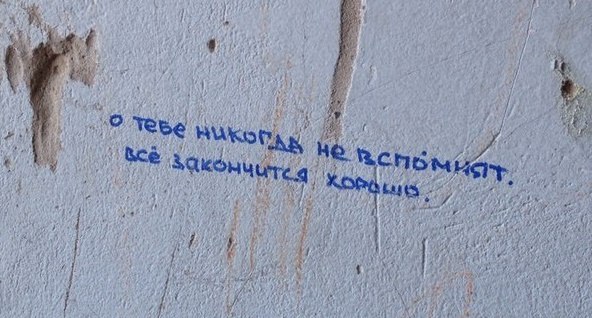 о тебе никогда не вспомнят.
всё закончится хорошо.